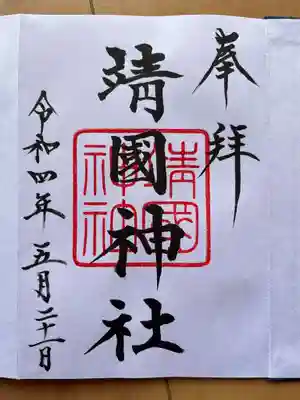 奉拝
靖國神社
令和四年五月二十一日
靖國神社